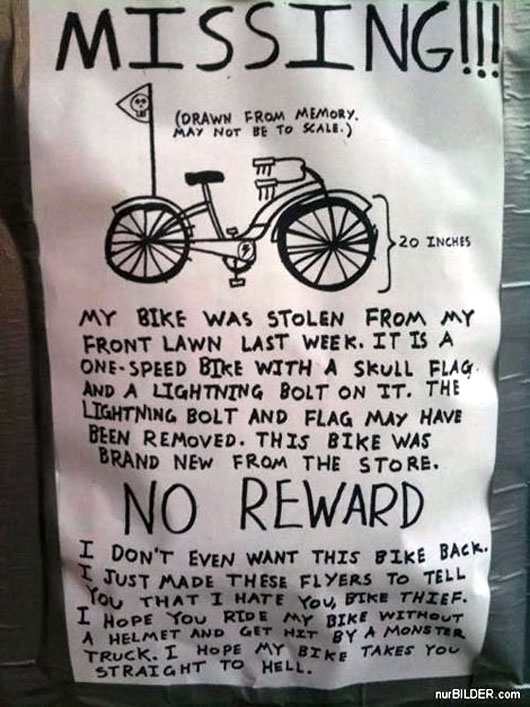 MISSING!!!
(DRAWN FROM MEMORY.
MAY NOT BE TO SCALE.)
20 INCHES
MY BIKE WAS STOLEN FROM MY
FRONT LAWN LAST WEEK. IT IS A
ONE-SPEED BIKE WITH A SKULL FLAG
AND A LIGHTNING BOLT ON IT. THE
LIGHTNING BOLT AND FLAG MAY HAVE
BEEN REMOVED. THIS BIKE WAS
BRAND NEW FROM THE STORE.
NO REWARD
I DON'T EVEN WANT THIS BIKE BACK.
I JUST MADE THESE FLYERS TO TELL
YOU THAT I HATE YOU, BIKE THIEF.
I HOPE YOU RIDE MY BIKE WITHOUT
A HELMET AND GET HIT BY A MONSTER
TRUCK. I HOPE MY BIKE TAKES YOU
STRAIGHT TO HELL.
nurBILDER.com